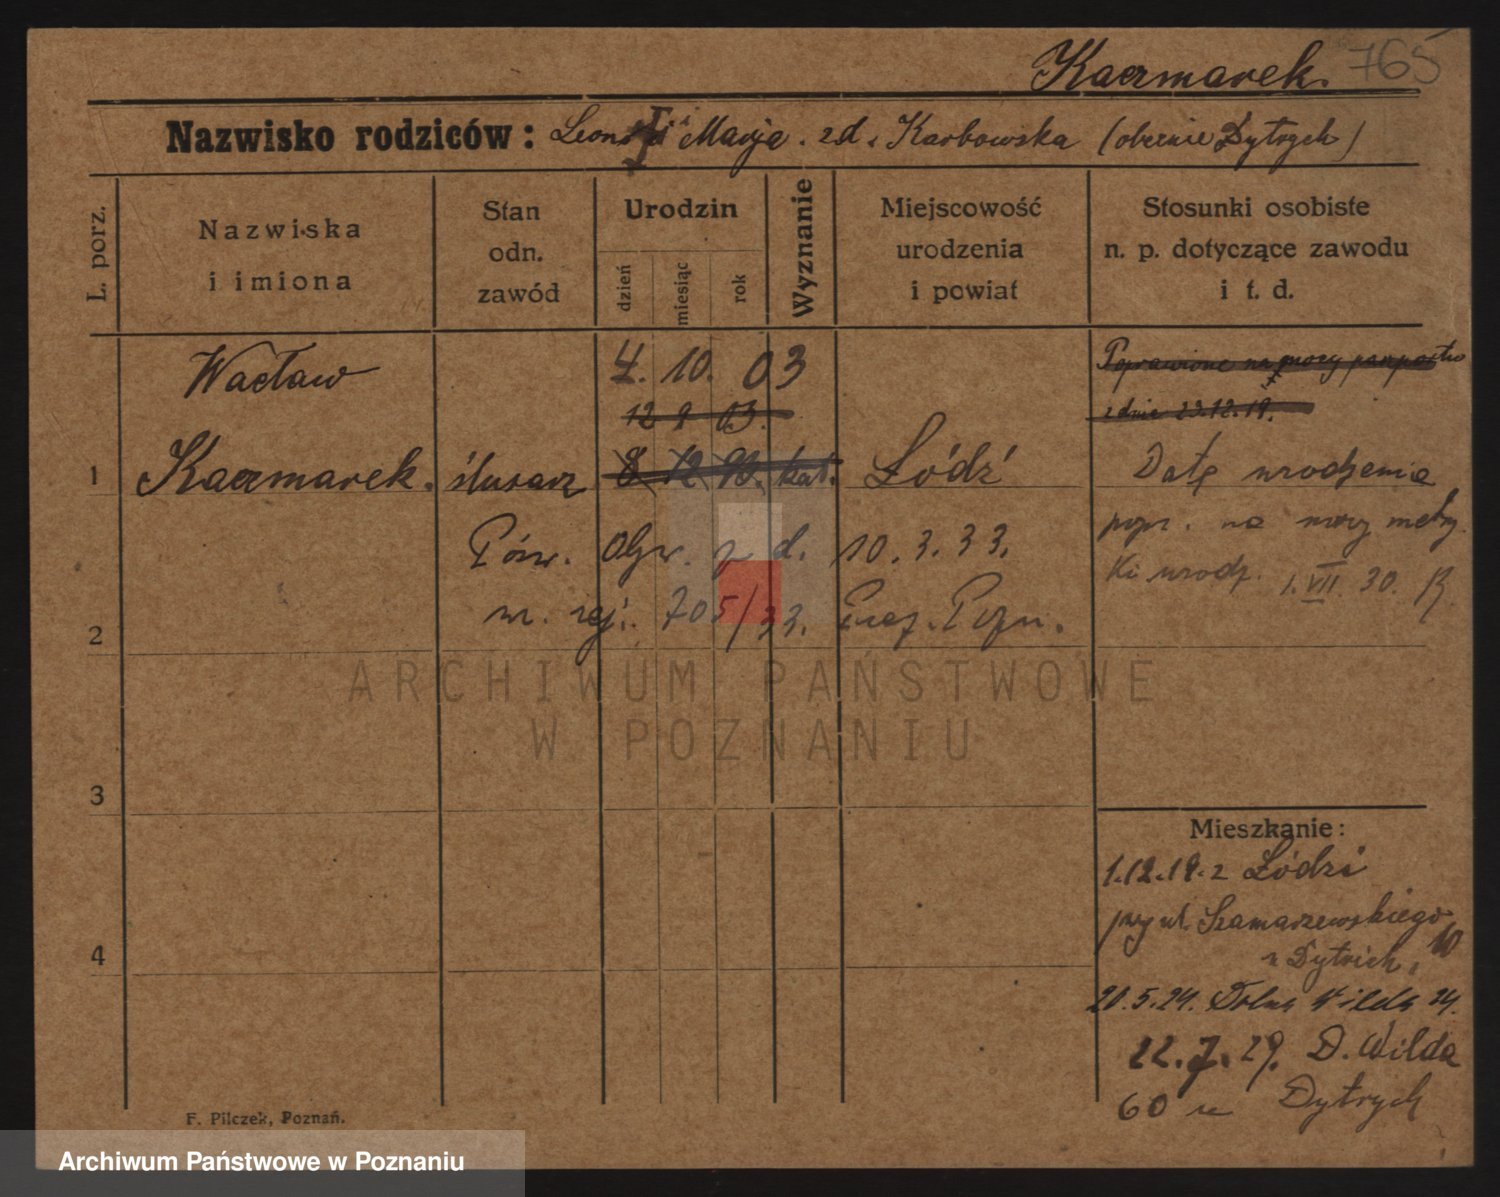 Kaczmarek. 765
Nazwisko rodziców: Leon i Marja. zd. Karbowska (obecnie Dytrych)
L. porz.
Nazwiska
i imiona
Stan
odn.
zawód
Urodzin
dzień
miesiąc
rok
Wyznanie
Miejscowość
urodzenia
i powiat
Stosunki osobiste
n. p. dotyczące zawodu
i t. d.
Wacław 4. 10. 03 Poprawione na mocy paszportu
12 9 03. z dnia 23.12.19.
1 Kaczmarek. ślusarz 8 12 kat. Łódź Datę urodzenia
Pośw. Obyw. z d. 10.3.33. popr. na mocy metry
ki urodz. 1.VII.30.
nr. rej. 705/33. Prez. Pozn.
2
3
4
Mieszkanie:
1.12.19. z Łodzi
przy ul. Szamarzewskiego 10
u Dytrich,
20.5.24. Dolna Wilda 24.
22.7.29. D. Wilda
60 u Dytrych
F. Pilczek, Poznań.
ARCHIWUM PAŃSTWOWE
W POZNANIU
Archiwum Państwowe w Poznaniu